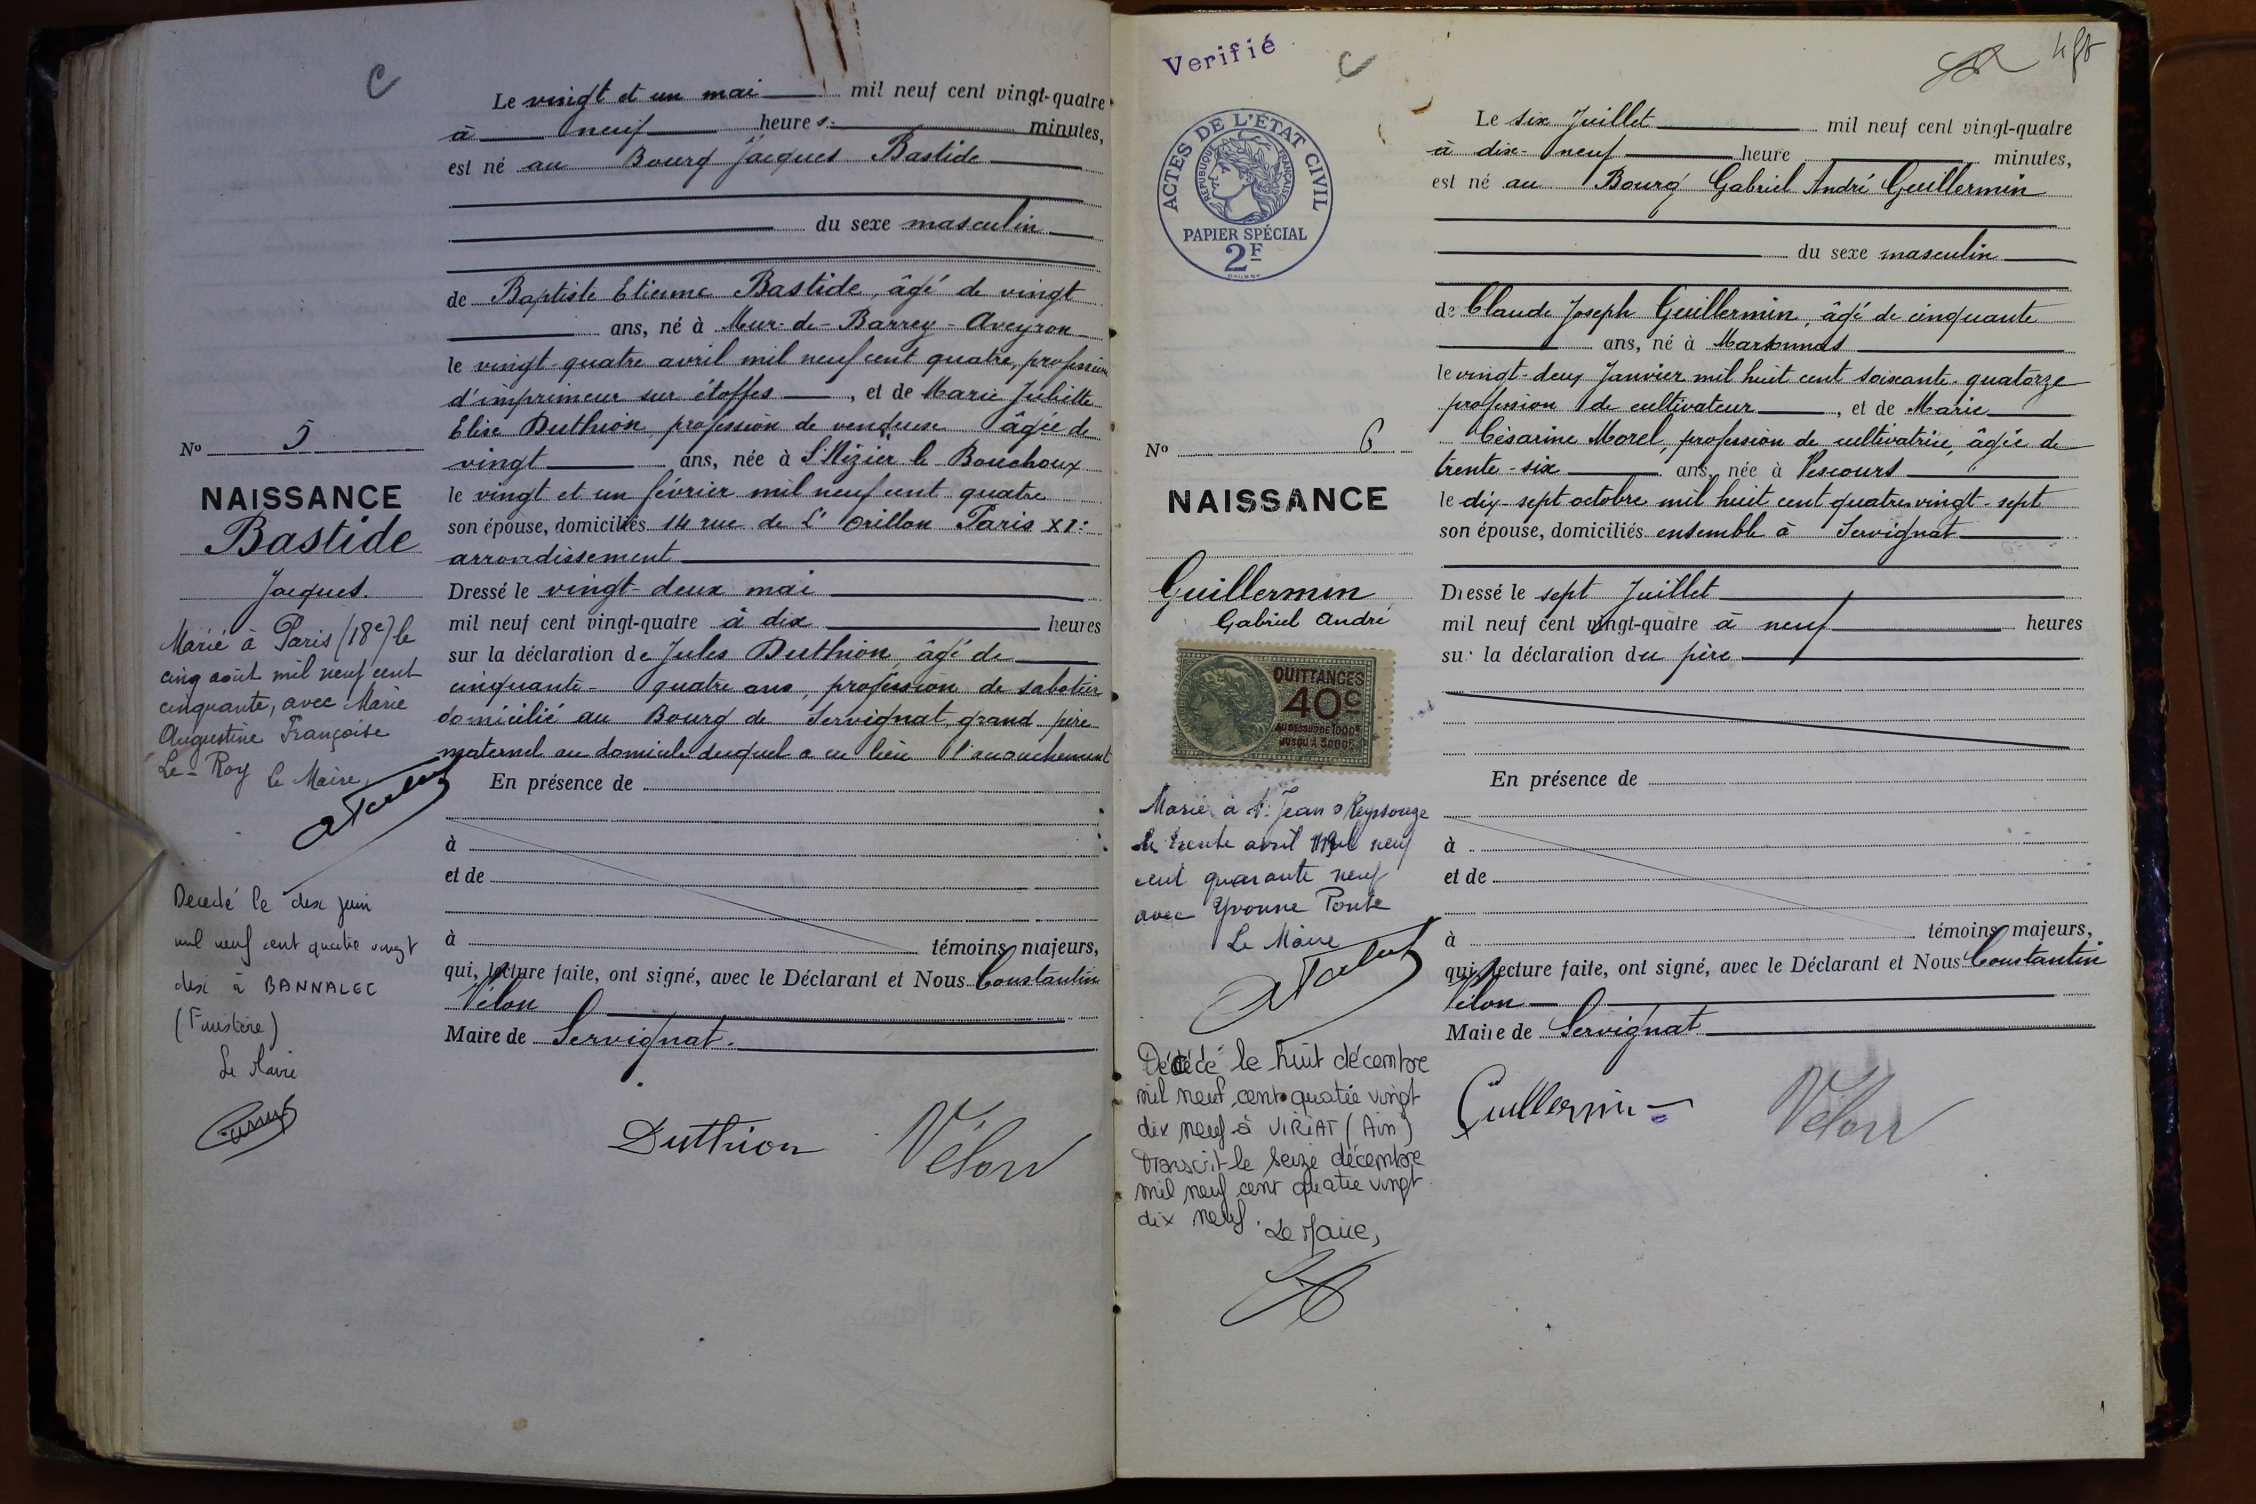 C
Le vingt et un mai mil neuf cent vingt-quatre
à neuf heures minutes,
est né au Bourg Jacques Bastide
du sexe masculin
de Baptiste Etienne Bastide, âgé de vingt
ans, né à Mur-de-Barrez-Aveyron
le vingt-quatre avril mil neuf cent quatre, profession
d'imprimeur sur étoffes, et de Marie Juliette
Elise Duthion, profession de vendeuse âgée de
vingt ans, née à St Nizier le Bouchoux
le vingt et un février mil neuf cent quatre
son épouse, domiciliés 14 rue de L'Orillon Paris XIe
arrondissement
Dressé le vingt-deux mai
mil neuf cent vingt-quatre à dix heures
sur la déclaration de Jules Duthion, âgé de
cinquante-quatre ans, profession de sabotier
domicilié au Bourg de Servignat, grand-père
maternel au domicile duquel a eu lieu l'accouchement
En présence de
à
et de
à témoins majeurs,
qui, lecture faite, ont signé, avec le Déclarant et Nous Constantin
Vélon
Maire de Servignat.
Duthion Vélon
No 5
NAISSANCE
Bastide
Jacques.
Marié à Paris (18e) le
cinq août mil neuf cent
cinquante, avec Marie
Augustine Françoise
Le-Roy Le Maire,
Décédé le dix juin
mil neuf cent quatre vingt
dix à BANNALEC
(Finistère)
Le Maire
Verifié
C
ACTES DE L'ÉTAT CIVIL
RÉPUBLIQUE FRANÇAISE
PAPIER SPÉCIAL
2F
Le six Juillet mil neuf cent vingt-quatre
à dix-neuf heure minutes,
est né au Bourg Gabriel André Guillermin
du sexe masculin
de Claude Joseph Guillermin, âgé de cinquante
ans, né à Marsonnas
le vingt-deux Janvier mil huit cent soixante-quatorze
profession de cultivateur, et de Marie
Césarine Morel, profession de cultivatrice, âgée de
trente-six ans, née à Vescours
le dix-sept octobre mil huit cent quatre vingt-sept
son épouse, domiciliés ensemble à Servignat
Dressé le sept Juillet
mil neuf cent vingt-quatre à neuf heures
sur la déclaration du père
En présence de
à
et de
à témoins majeurs,
qui, lecture faite, ont signé, avec le Déclarant et Nous Constantin
Vélon
Maire de Servignat
Guillermin Vélon
No 6
NAISSANCE
Guillermin
Gabriel André
QUITTANCES
40c
AU DESSUS DE 1000F
JUSQU'À 3000F
Marié à St Jean s/Reyssouze
le trente avril mil neuf
cent quarante neuf
avec Yvonne Ponte
Le Maire
Décédé le huit décembre
mil neuf cent quatre vingt
dix neuf à VIRIAT (Ain)
Transcrit le seize décembre
mil neuf cent quatre vingt
dix neuf. Le Maire,